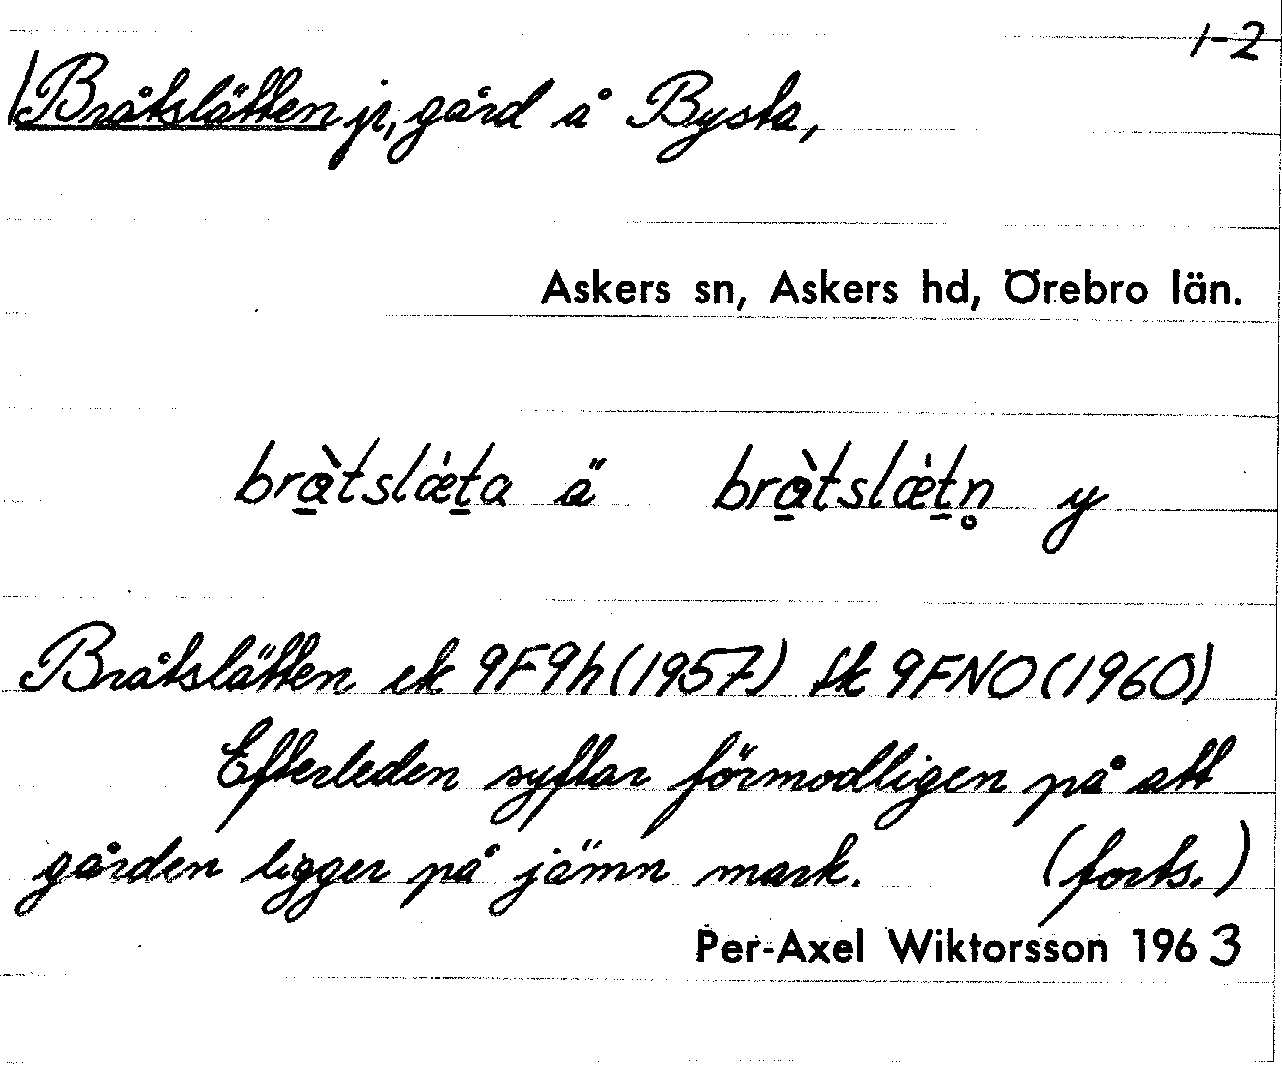 1-2
Bråtslätten jr, gård å Bysta,
Askers sn, Askers hd, Örebro län.
bràtslǽta ä bràtslǽtn̥ y
Bråtslätten ek 9F9h (1957) tk 9FNO (1960)
Efterleden syftar förmodligen på att
gården ligger på jämn mark. (forts.)
Per-Axel Wiktorsson 1963